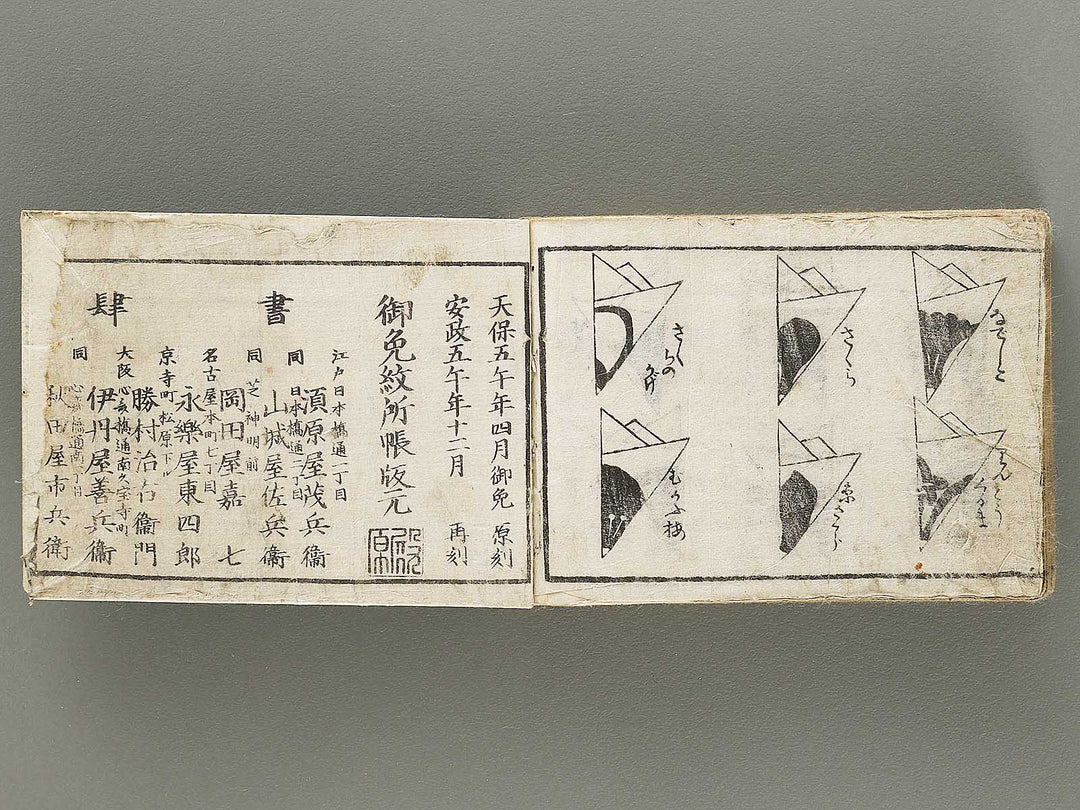 なでしこ
さくら
糸さくら
むかふ梅
天保五午年四月御免 原刻
安政五午年十二月 再刻
御免紋所帳版元
書肆
江戸日本橋通一丁目
須原屋茂兵衞
同 日本橋通二丁目
山城屋佐兵衞
同 芝神明前
岡田屋嘉七
名古屋本町七丁目
永樂屋東四郎
京寺町松原下ル
勝村治右衞門
大阪心斎橋通南久宝寺町
伊丹屋善兵衞
同 心斎橋通南一丁目
秋田屋市兵衞